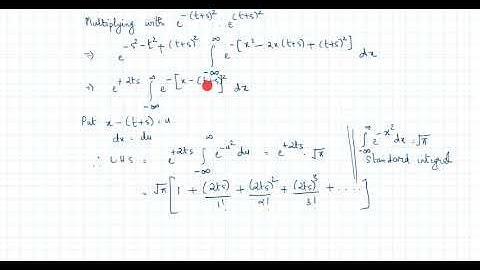 Multiplying with e^{-(t+s)^2} . e^{(t+s)^2}
⇒ e^{-s^2-t^2+(t+s)^2} ∫_{-∞}^{∞} e^{-[x^2-2x(t+s)+(t+s)^2]} dx
⇒ e^{+2ts} ∫_{-∞}^{∞} e^{-[x-(t+s)]^2} dx
Put x-(t+s) = u
dx = du
∴ LHS = e^{+2ts} ∫_{-∞}^{∞} e^{-u^2} du = e^{+2ts} . √π
∫_{-∞}^{∞} e^{-x^2} dx = √π
Standard integral
= √π [ 1 + (2ts)/1! + (2ts)^2/2! + (2ts)^3/3! + .... ]